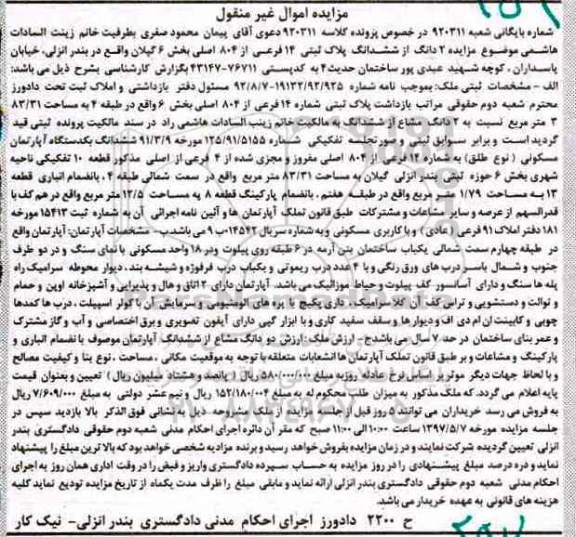 مزایده اموال غیر منقول
شماره بایگانی شعبه ۹۲۰۳۱۱ در خصوص پرونده کلاسه ۹۲۰۳۱۱ دعوی آقای پیمان محمود صفری بطرفیت خانم زینت السادات
هاشمی موضوع مزایده ۲ دانگ از ششدانگ پلاک ثبتی ۱۴ فرعی از ۸۰۴ اصلی بخش ۶ گیلان واقع در بندر انزلی، خیابان
پاسداران، کوچه شهید عبدی پور ساختمان حدیث ۴ به کدپستی ۷۶۷۱۱-۴۳۱۴۷ بگزارش کارشناسی بشرح ذیل می باشد:
الف - مشخصات ثبتی ملک: بموجب نامه شماره ۱۹۱۳۲/۹۲/۹۲۵-۹۲/۸/۷ مسئول دفتر بازداشتی و املاک ثبت تحت دادورز
محترم شعبه دوم حقوقی مراتب بازداشت پلاک ثبتی شماره ۱۴ فرعی از ۸۰۴ اصلی بخش ۶ واقع در طبقه ۴ به مساحت ۸۳/۳۱
متر مربع نسبت به ۲ دانگ مشاع از ششدانگ به مالکیت خانم زینب السادات هاشمی راد در سند مالکیت پرونده ثبتی قید
گردیده است و برابر سوابق ثبتی و صورتجلسه تفکیکی شماره ۱۲۵/۹۱/۵۱۵۵ مورخه ۹۱/۳/۹ ششدانگ یکدستگاه آپارتمان
مسکونی (نوع طلق) به شماره ۱۴ فرعی از ۸۰۴ اصلی مفروز و مجزی شده از ۴ فرعی از اصلی مذکور قطعه ۱۰ تفکیکی ناحیه
شهری بخش ۶ حوزه ثبتی بندر انزلی گیلان به مساحت ۸۳/۳۱ متر مربع واقع در سمت شمالی طبقه ۴، بانضمام انباری قطعه
۱۳ به مساحت ۱/۷۹ متر مربع واقع در طبقه هفتم، بانضمام پارکینگ قطعه ۸ به مساحت ۱۲/۵ متر مربع واقع در هم کف با
قدرالسهم از عرصه و سایر مشاعات و مشترکات طبق قانون تملک آپارتمان ها و آئین نامه اجرائی آن به شماره ثبت ۱۵۴۱۳ مورخه
۱۸۱ دفتر املاک ۹۱ فرعی (عادی) و با کاربری مسکونی و به شماره سریال ۱۴۵۴۲ ب ۹ می باشد. ب- مشخصات آپارتمان: آپارتمان واقع
در طبقه چهارم سمت شمالی یکباب ساختمان بتن آرمه در ۶ طبقه روی پیلوت و در ۱۸ واحد مسکونی با نمای سنگ و در دو طرف
جنوب و شمال باسر درب های ورق رنگی و با ۴ عدد درب ریموتی و یکباب درب فرفوژه و شیشه بند، دیوار محوطه سرامیک راه
پله ها سنگ و دارای آسانسور کف پیلوت و حیاط موزائیک می باشد. آپارتمان دارای ۲ اتاق و هال و پذیرایی و آشپزخانه اوپن و حمام
و توالت و دستشویی و تراس کف آن کلا سرامیک، داری پکیج با پره های آلومینیومی و سرمایش آن با کولر اسپیلت، درب ها کمدها
چوبی و کابینت ان ام دی اف و دیوارها و سقف سفید کاری و با ابزار گپی دارای آیفون تصویری و برق اختصاصی و آب و گاز مشترک
و عمر بنای ساختمان در حد ۷ سال می باشد ج- ارزش ملک: ارزش دو دانگ مشاع از ششدانگ آپارتمان موصوف با نضمام انباری و
پارکینگ و مشاعات و بر طبق قانون تملک آپارتمان ها انشعابات متعلقه با توجه به موقعیت مکانی، مساحت، نوع بنا و کیفیت مصالح
و با لحاظ جهات دیگر موثر بر اساس نرخ عادله روز به مبلغ ۵۸۰/۰۰۰/۰۰۰ ریال (پانصد و هشتاد میلیون ریال) تعیین و بعنوان قیمت
پایه اعلام می گردد. که ملک مذکور به میزان طلب محکوم له به مبلغ ۱۵۲/۱۸۰/۰۰۴ ریال و نیم عشر دولتی به مبلغ ۷/۶۰۹/۰۰۰ ریال
به فروش می رسد خریداران می توانند ۵ روز قبل از جلسه مزایده از ملک با مراجعه به نشانی فوق الذکر بالا بازدید سپس در
جلسه مزایده مورخه ۱۳۹۷/۵/۷ ساعت ۱۰:۰۰ الی ۱۱:۰۰ صبح که مقر آن دائره اجرای احکام مدنی شعبه دوم حقوقی دادگستری بندر
انزلی تعیین گردیده شرکت نمایند و در زمان مزایده بفروش خواهد رسید و برنده مزایده شخصی خواهد بود که بالاترین مبلغ را پیشنهاد
نماید و ده درصد مبلغ پیشنهادی را در روز مزایده به حساب سپرده دادگستری واریز و فیض را در وقت اداری همان روز به اجرای
احکام مدنی شعبه دوم حقوقی دادگستری بندر انزلی ارائه نماید و مابقی مبلغ را ظرف مدت یکماه از تاریخ مزایده تودیع نماید کلیه
هزینه های قانونی به عهده خریدار می باشد.
ح ۲۲۰۰ دادورز اجرای احکام مدنی دادگستری بندر انزلی- نیک کار